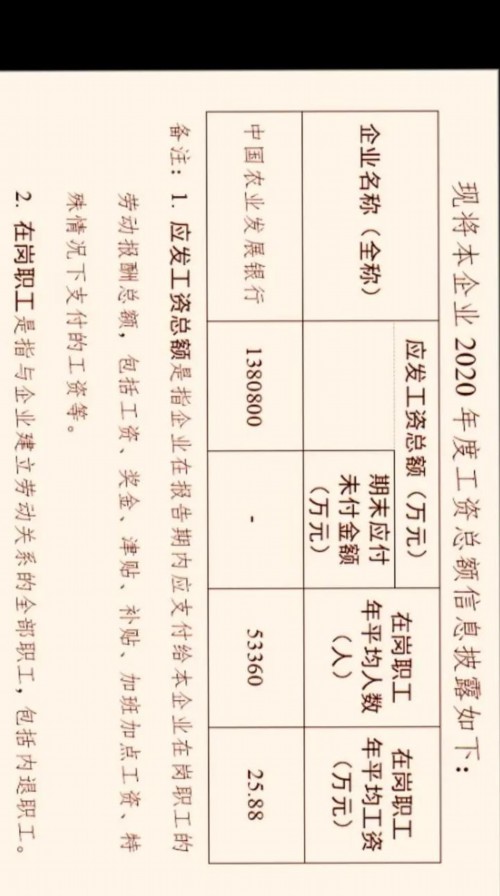 现将本企业 2020 年度工资总额信息披露如下：
企业名称（全称）
应发工资总额（万元）
期末应付
未付金额
（万元）
在岗职工
年平均人数
（人）
在岗职工
年平均工资
（万元）
中国农业发展银行
1380800
-
53360
25.88
备注：1. 应发工资总额是指企业在报告期内应支付给本企业在岗职工的
劳动报酬总额，包括工资、奖金、津贴、补贴、加班加点工资、特
殊情况下支付的工资等。
2. 在岗职工是指与企业建立劳动关系的全部职工，包括内退职工。